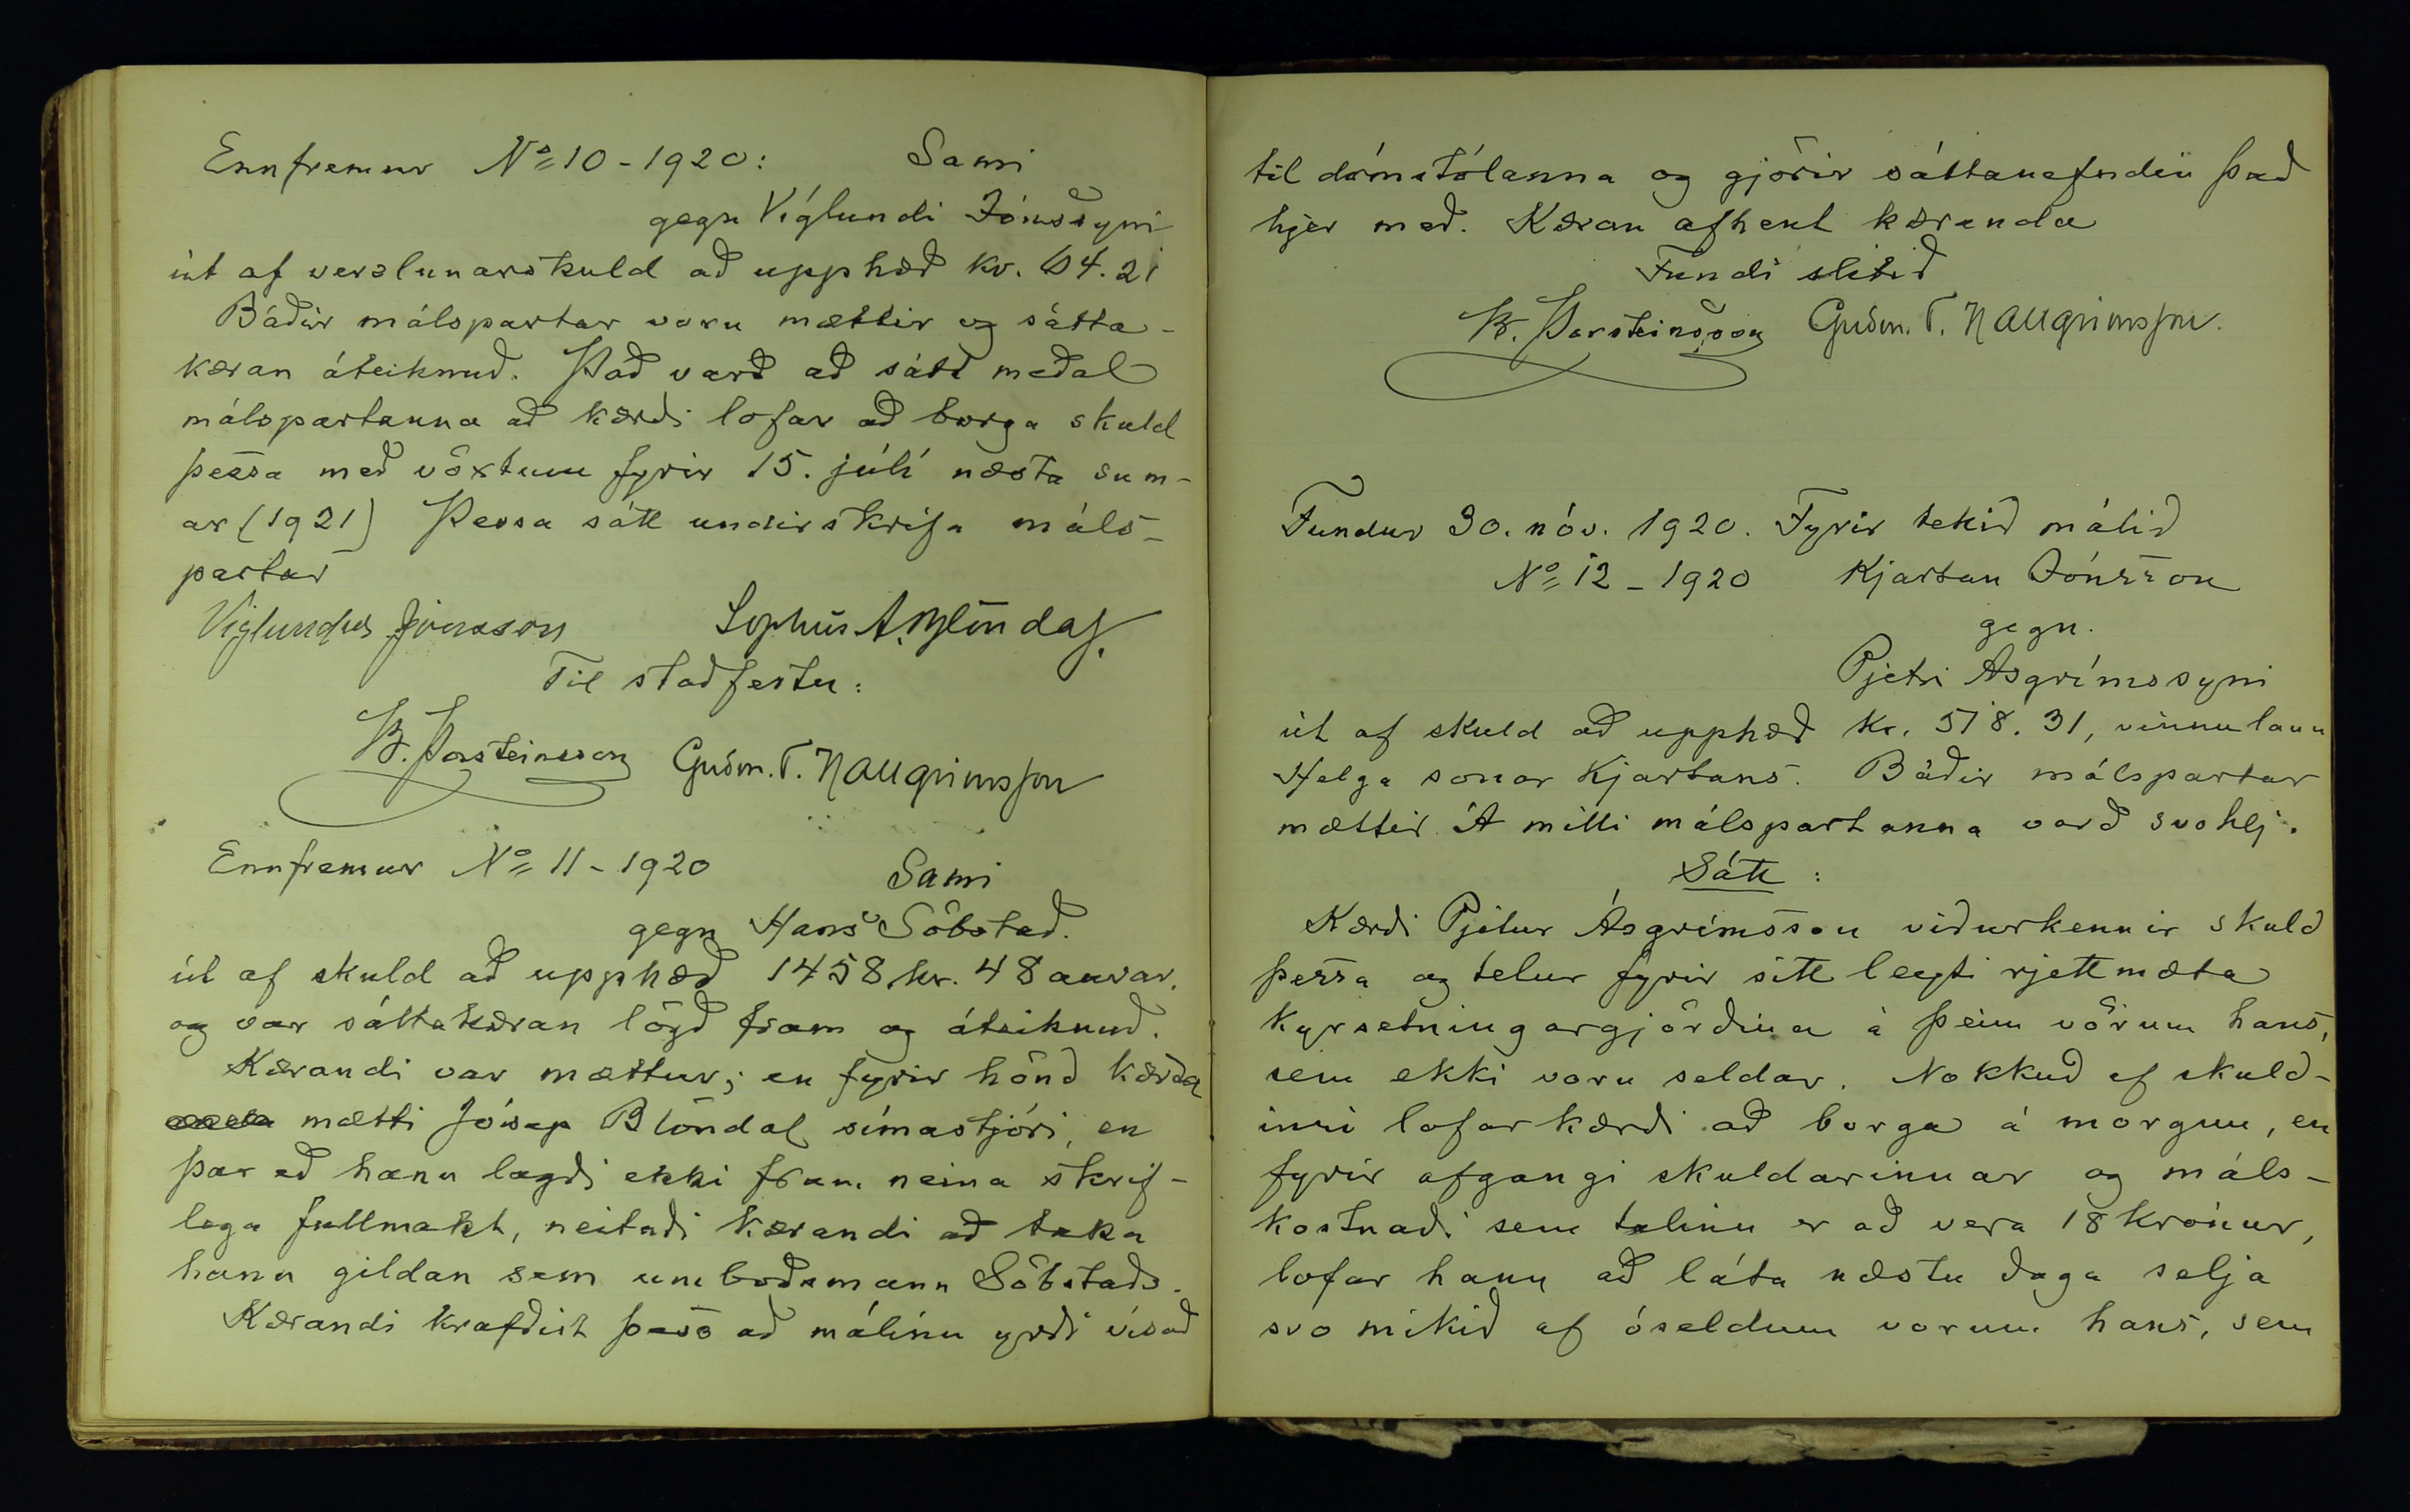 Ennfremur No 10-1920: Sami
gegn Víglundi Jónssyni
út af verzlunarskuld að upphæð kr. 64.21
Báðir málspartar voru mættir og sátta-
kæran áteiknuð. Það varð að sátt meðal
málspartanna að kærði lofar að borga skuld
þessa með vöxtum fyrir 15. júlí næsta sum-
ar (1921) Þessa sátt undirskrifa máls-
partar
Víglundur Jónsson Sophus A. Blöndal.
Til staðfestu:
B. Þorsteinsson Guðm. T. Hallgrímsson
Ennfremur No 11-1920 Sami
gegn Hans Söbstað.
út af skuld að upphæð 1458 kr. 48 aurar.
og var sáttakæran lögð fram og áteiknuð.
Kærandi var mættur; en fyrir hönd kærða
mætti Jósep Blöndal símastjóri, en
þar eð hann lagði ekki fram neina skrif-
lega fullmakt, neitaði kærandi að taka
hann gildan sem umboðsmann Söbstaðs.
Kærandi krafðist þess að málinu yrði vísað
til dómstólanna og gjörir sáttanefndin það
hjer með. Kæran afhent kæranda
Fundi slitið
B. Þorsteinsson Guðm. T. Hallgrímsson.
Fundur 30. nóv. 1920. Fyrir tekið málið
No 12-1920 Kjartan Jónsson
gegn.
Pjetri Ásgrímssyni
út af skuld að upphæð kr. 518.31, vinnulaun
Helga sonar Kjartans. Báðir málspartar
mættir. Á milli málspartanna varð svohlj.
Sátt:
Kærði Pjetur Ásgrímsson viðurkennir skuld
þessa og telur fyrir sitt leyti rjettmæta
kyrsetningargjörðina á þeim vörum hans,
sem ekki voru seldar. Nokkuð af skuld-
inni lofar kærði að borga á morgun, en
fyrir afgangi skuldarinnar og máls-
kostnaði sem talinn er að vera 18 krónur,
lofar hann að láta næstu daga selja
svo mikið af óseldum vörum hans, sem